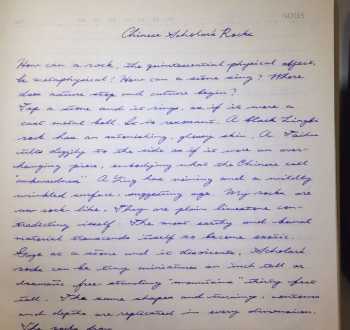 Chinese Scholar's Rocks
How can a rock, the quintessential physical object,
be metaphysical? How can a stone sing? Where
does nature stop and culture begin?
Tap a stone and it rings, as if it were a
cast metal bell so is resonant. A black Lingbi
rock has an astonishing, glossy skin. A Taihu
tilts dizzily to the side as if it were an over-
hanging spire, embodying what the Chinese call
"awkwardness" A Ying has veining and a mildly
wrinkled surface, suggesting age. My rocks are
un rock like. They are plain limestone con-
tradicting itself. The most earthy and banal
material transcends itself to become exotic.
Gaze at a stone and it dissolves. Scholar's
rocks can be tiny miniatures an inch tall or
dramatic free standing "mountains" thirty feet
tall. The same shapes and turning, contours
and depths are replicated in every dimension.
The rocks